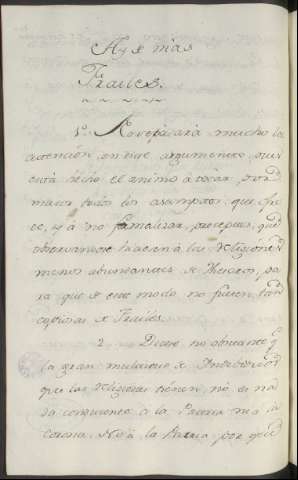 Ay de mas
Frailes.
1.º No se parará mucho la
atencion en este argumento, pues
está hecho el animo á tocar por
maior todos los asumptos, que ofre
ce, y á no formalizar preceptos, que
observandose hicieran á las Religiones
menos abundantes de Thesoros, pa
ra que de este modo no fuesen tan
copiosas de Frailes.
2. Dicese no obstante q.e
la gran multitud de Individuos
que las Religiones tienen, no es na
da conveniente á la Patria ni á la
Corona. No á la Patria por que